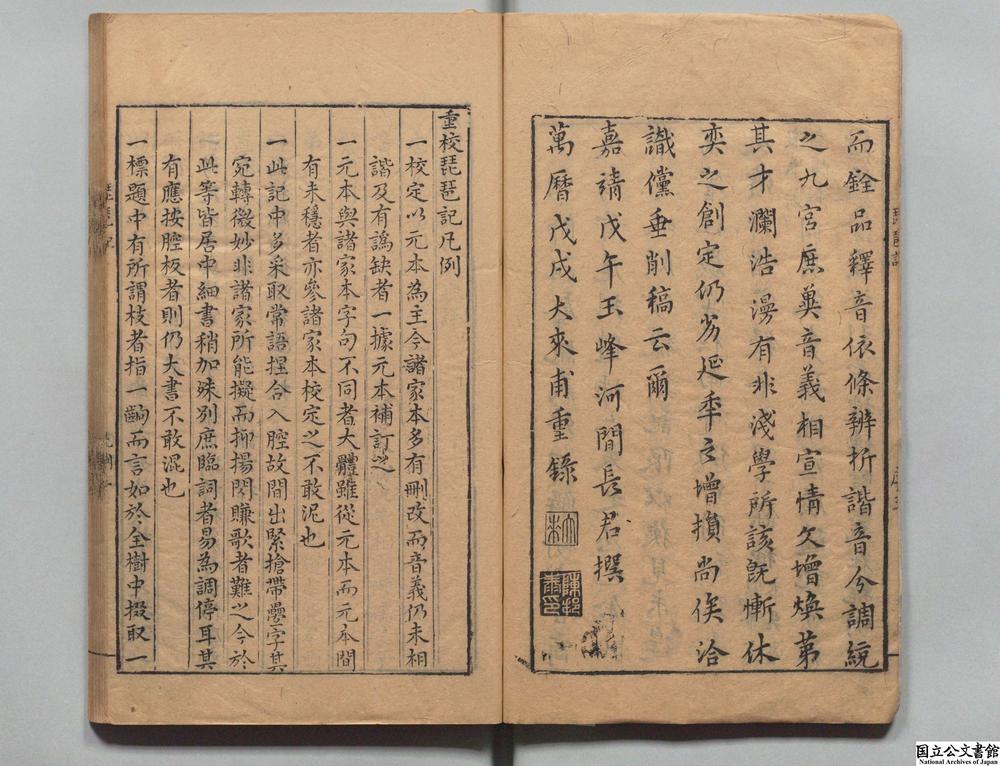 而銓品釋音依條辨折諧音分調統
之九宮庶冀音義相宣情文增煥第
其才瀾浩漫有非淺學所該既慚休
奕之創定仍劣延年之增損尚俟洽
識儻垂削稿云爾
嘉靖戊午玉峰河間長君撰
萬曆戊戌大來甫重錄
大來
重校琵琶記凡例
一校定以元本為主今諸家本多有刪改而音義仍未相
諧及有譌缺者一據元本補訂之
一元本與諸家本字句不同者大體雖從元本而元本間
有未穩者亦參諸家本校定之不敢泥也
一此記中多采取常語捏合入腔故間出緊搶帶疊字其
宛轉微妙非諸家所能擬而抑揚閃賺歌者難之今於
此等皆居中細書稍加殊別庶臨詞者易為調停耳其
有應按腔板者則仍大書不敢混也
一標題中有所謂枝者指一齣而言如於全樹中掇取一
国立公文書館
National Archives of Japan